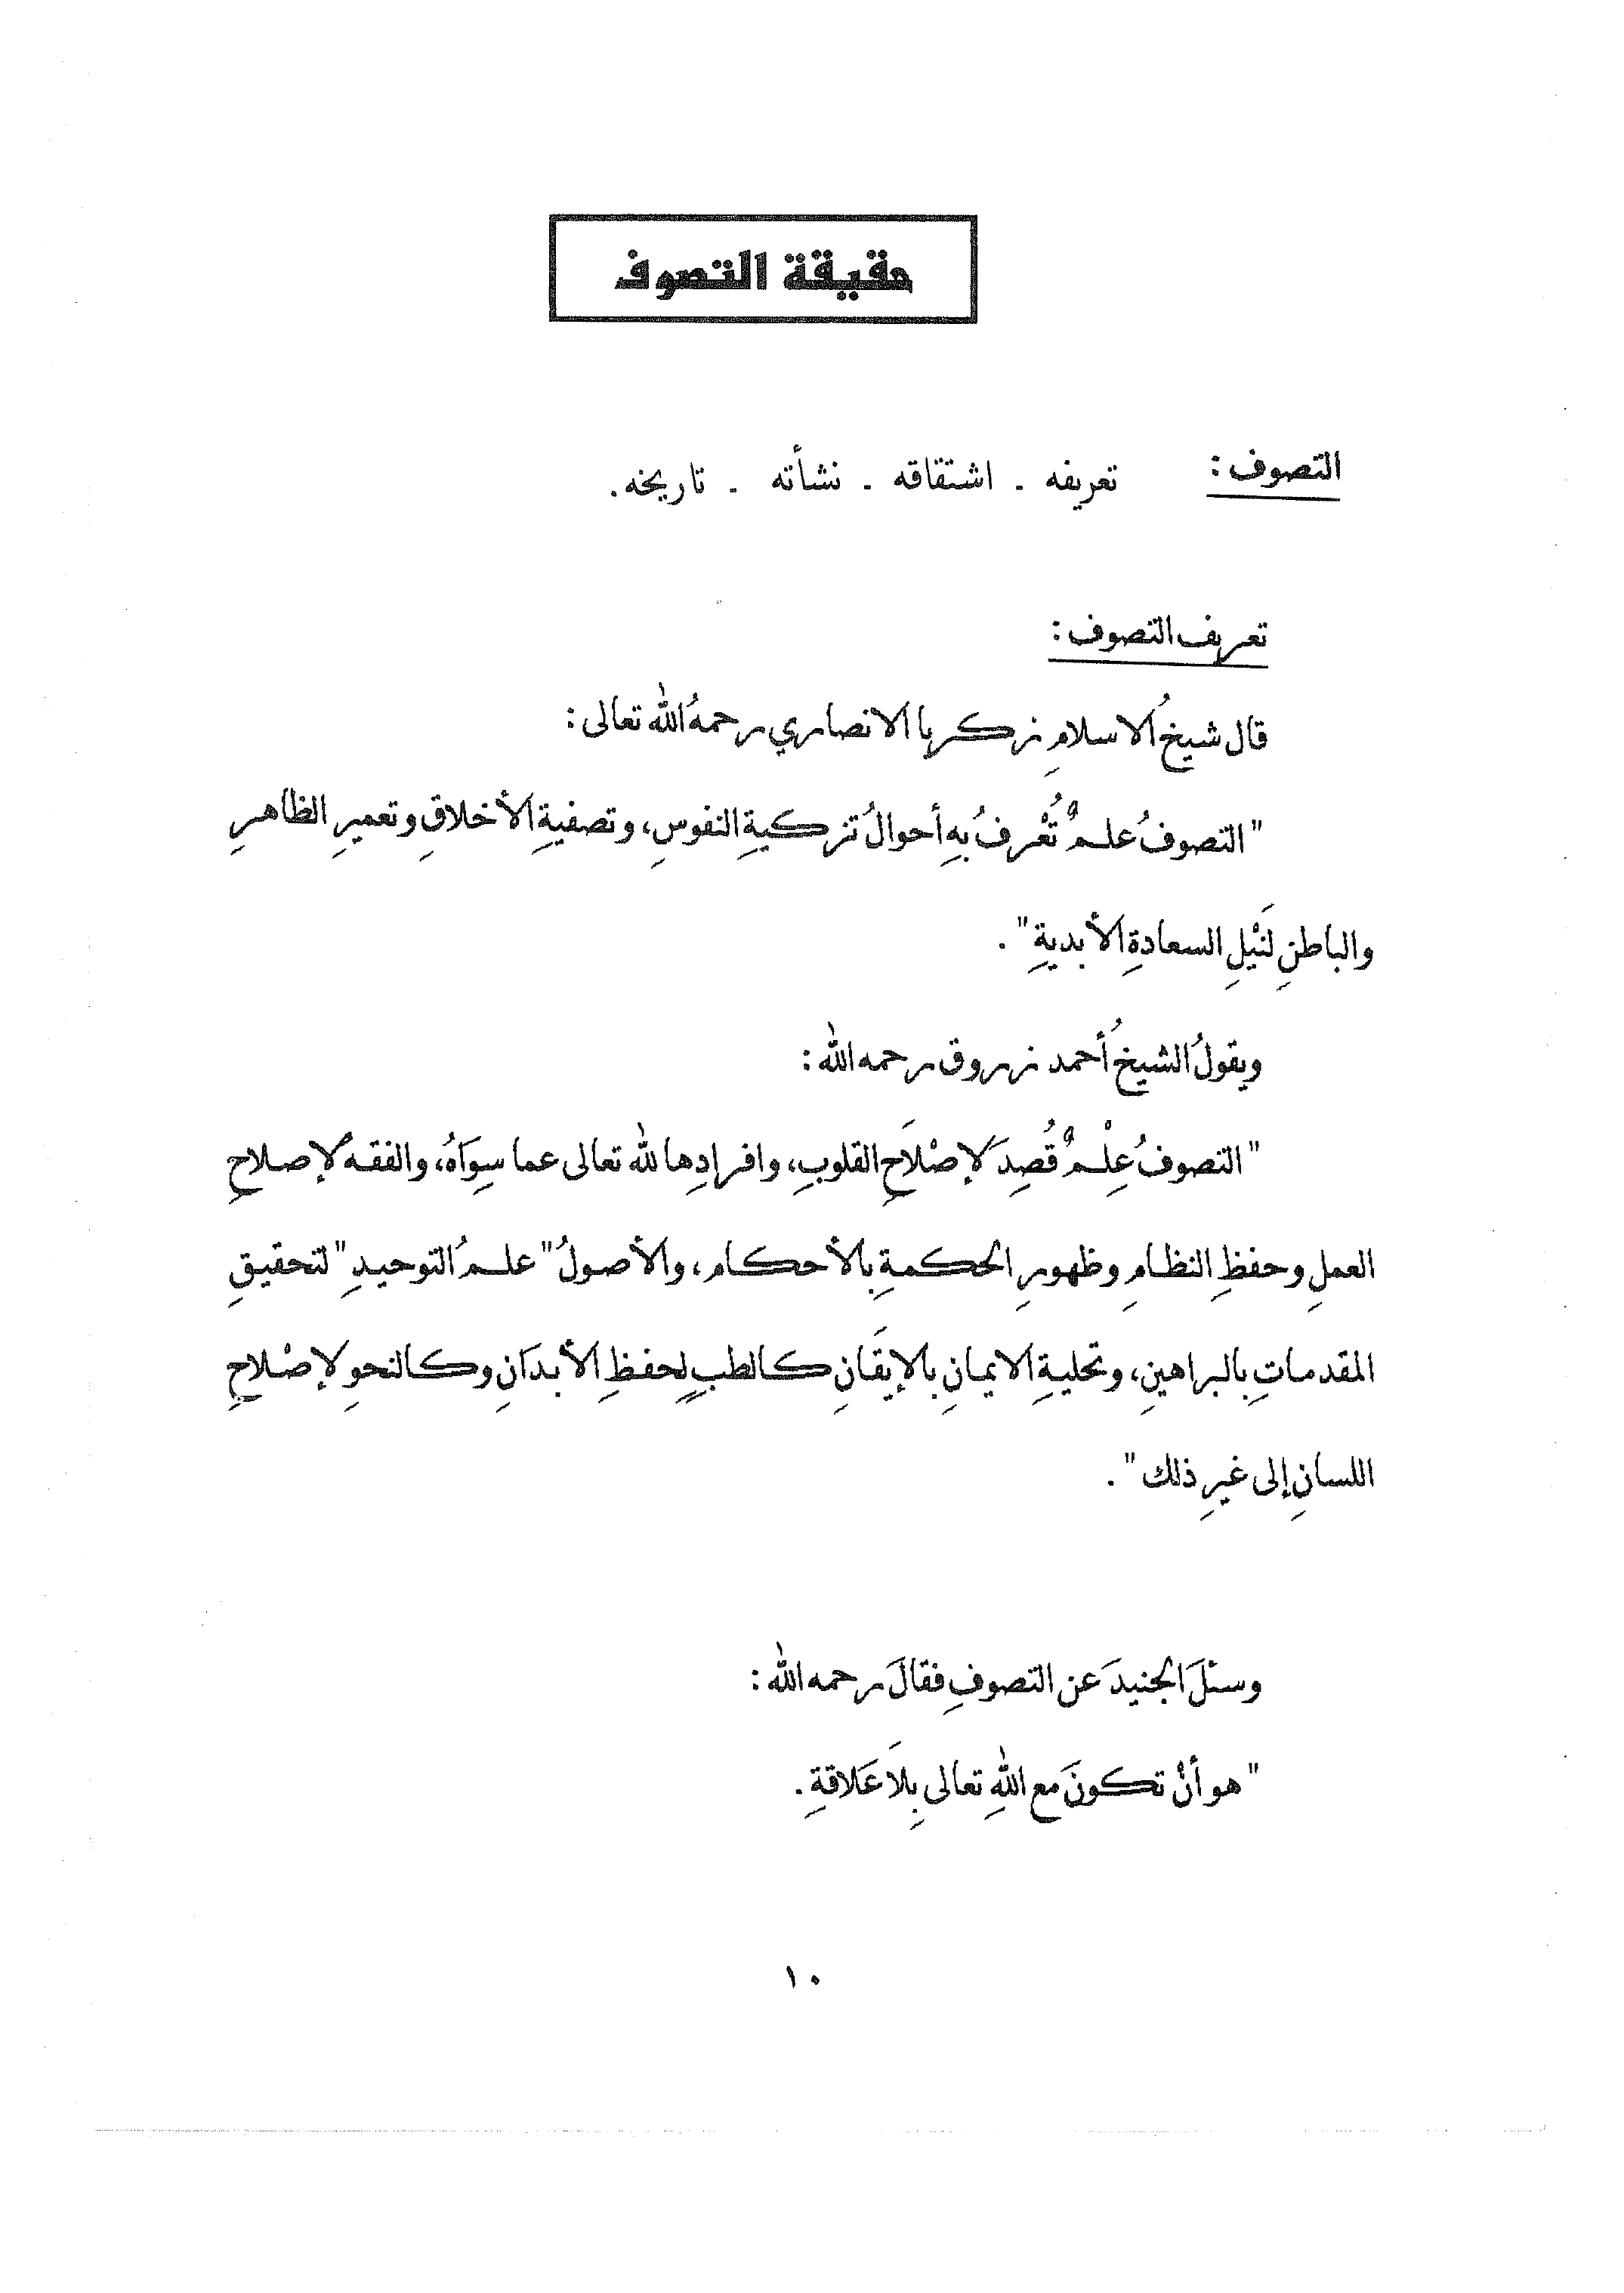 حقيقة التصوف
التصوف : تعريفه - اشتقاقه - نشأته - تاريخه.
تعريف التصوف :
قال شيخُ الاسلامِ زكريا الانصاري رحمهُ الله تعالى :
" التصوفُ علمٌ تُعْرفُ بهِ أحوالُ تزكيةِ النفوسِ، وتصفيةِ الأخلاقِ وتعميرِ الظاهرِ
والباطنِ لنَيْلِ السعادةِ الأبديةِ " .
ويقولُ الشيخُ أحمد زروق رحمه الله :
" التصوفُ عِلْمٌ قُصِدَ لإصْلَاحِ القلوبِ، وافرادِها لله تعالى عما سِوَاهُ، والفقهُ لإصلاحِ
العملِ وحفظِ النظامِ وظهورِ الحكمةِ بالأحكام، والأصولُ " علمُ التوحيدِ " لتحقيقِ
المقدماتِ بالبراهينِ، وتحليةِ الايمانِ بالإيقَانِ كالطبِ لحفظِ الأبدَانِ وكالنحوِ لإصْلاحِ
اللسانِ إلى غيرِ ذلك " .
وسئلَ الجنيدَ عن التصوفِ فقالَ رحمه الله :
" هو أنْ تكونَ مع اللهِ تعالى بِلَا عَلاقةِ .
١٠